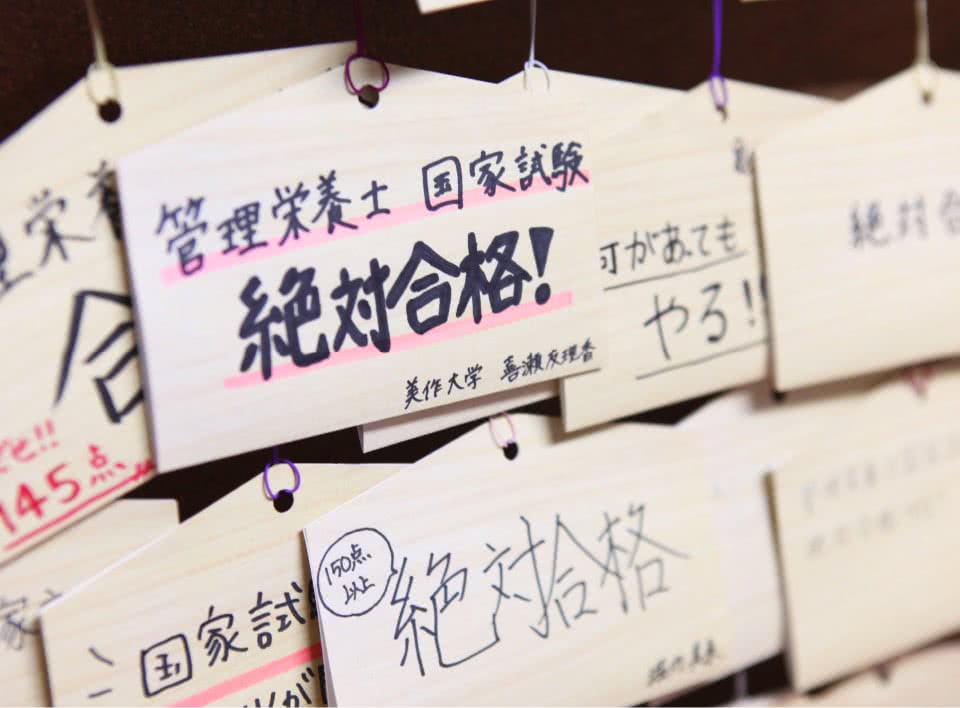 管理栄養士 国家試験
絶対合格!
美作大学 喜瀬友理香
理栄養
合
145点
があっても
やる!!
絶対合
150点
以上
絶対合格
国家試
が
家